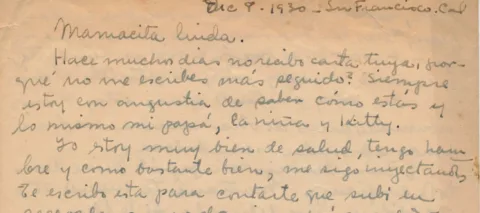 Dic 9 - 1930 - Sn Francisco. Cal
Mamacita linda.
Hace muchos dias no recibo carta tuya, ¿por-
qué no me escribes más seguido? Siempre
estoy con angustia de saber cómo estas y
lo mismo mi papá, la niña y Kitty.
Yo estoy muy bien de salud, tengo ham-
bre y como bastante bien, me sigo inyectando,
Te escribo esta para contarte que subí en